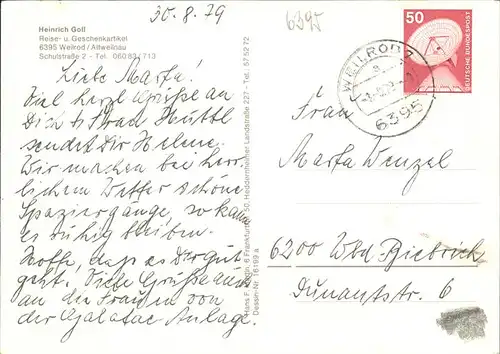 30.8.79
6395
Heinrich Goll
Reise- u. Geschenkartikel
6395 Weilrod / Altweilnau
Schulstraße 2 - Tel. 06083/713
Liebe Marta!
Viel herzl. Grüße an
Dich u. Frau Hüttl
sendet Dir Helene.
Wir machen bei herr-
lichem Wetter schöne
Spaziergänge, so kann
es ruhig bleiben.
Hoffe, daß es Dir gut
geht. Viele Grüße auch
an die Frauen von
der Galatea Anlage.
6 Frankfurt 50, Heddernheimer Landstraße 227 - Tel. 57 52 72
Dessin-Nr. T6199 a
50
DEUTSCHE BUNDESPOST
WEILROD
6395
Frau
Marta Wenzel
6200 Wbd-Biebrich
Dunantstr. 6